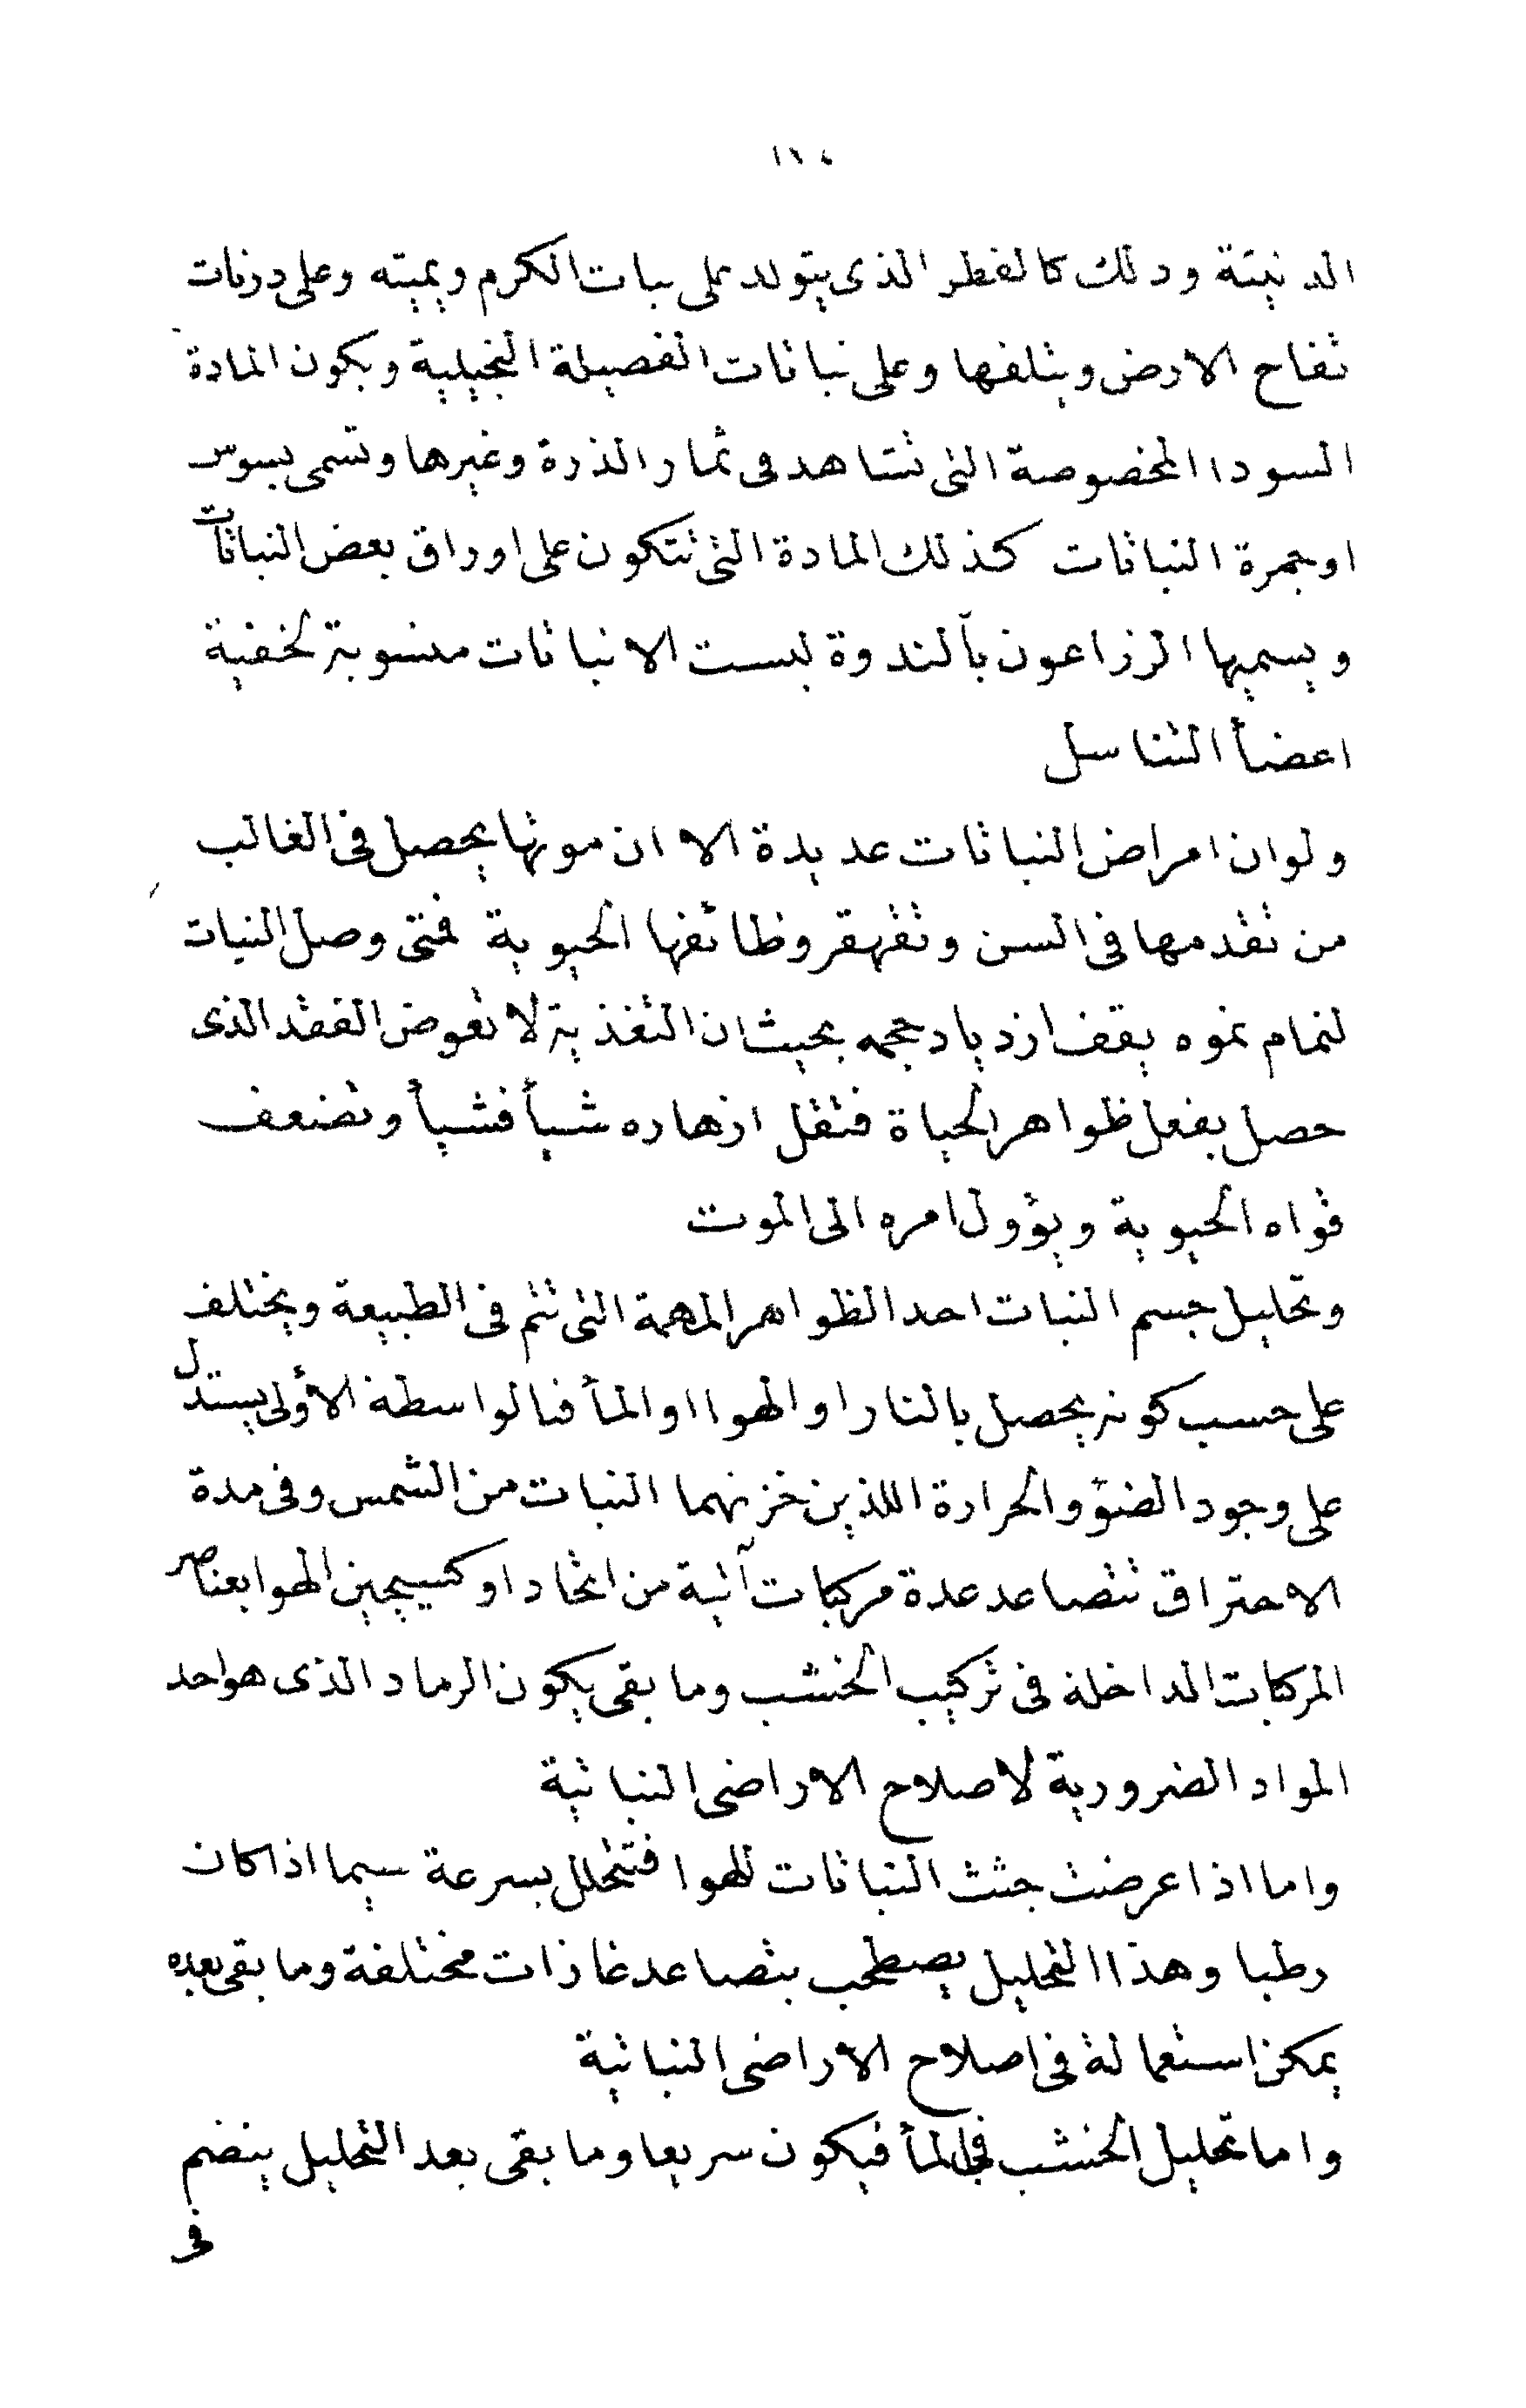 الدنيئة وذلك كالفطر الذى يتولد على نبات الكرم ويميته وعلى درنات
تفاح الارض ويتلفها وعلى نباتات الفصيلة النجيلية ويكون المادة
السودا المخصوصة التى تشاهد فى ثمار الذرة وغيرها وتسمى بسوس
او جمرة النباتات كذلك المادة التى تتكون على اوراق بعض النباتات
ويسميها الزراعون بالندوة ليست الا نباتات منسوبة لخفية
اعضأ التناسل
ولو ان امراض النباتات عديدة الا ان موتها يحصل فى الغالب
من تقدمها فى السن وتقهقر وظائفها الحيوية فمتى وصل النبات
لتمام نموه يقف ازدياد حجمه بحيث ان التغذية لا تعوض الفقد الذى
حصل بفعل ظواهر الحياة فتقل ازهاره شيأ فشيأ وتضعف
قواه الحيوية ويؤول امره الى الموت
وتحليل جسم النبات احد الظواهر المهمة التى تتم فى الطبيعة ويختلف
على حسب كونه يحصل بالنار او الهوا او المأ فبالواسطة الأولى يستدل
على وجود الضؤ والحرارة اللذين خزنهما النبات من الشمس وفى مدة
الاحتراق تتصاعد عدة مركبات آتية من اتحاد اوكسيجين الهوا بعناصر
المركبات الداخلة فى تركيب الخشب وما بقى يكون الرماد الذى هو احد
المواد الضرورية لاصلاح الاراضى النباتية
واما اذا عرضت جثث النباتات للهوا فتتحلل بسرعة سيما اذا كان
رطبا وهذا التحليل يصطحب بتصاعد غازات مختلفة وما بقى بعده
يمكن استعمالة فى اصلاح الاراضى النباتية
واما تحليل الخشب فى المأ فيكون سريعا وما بقى بعد التحليل ينضم
فى